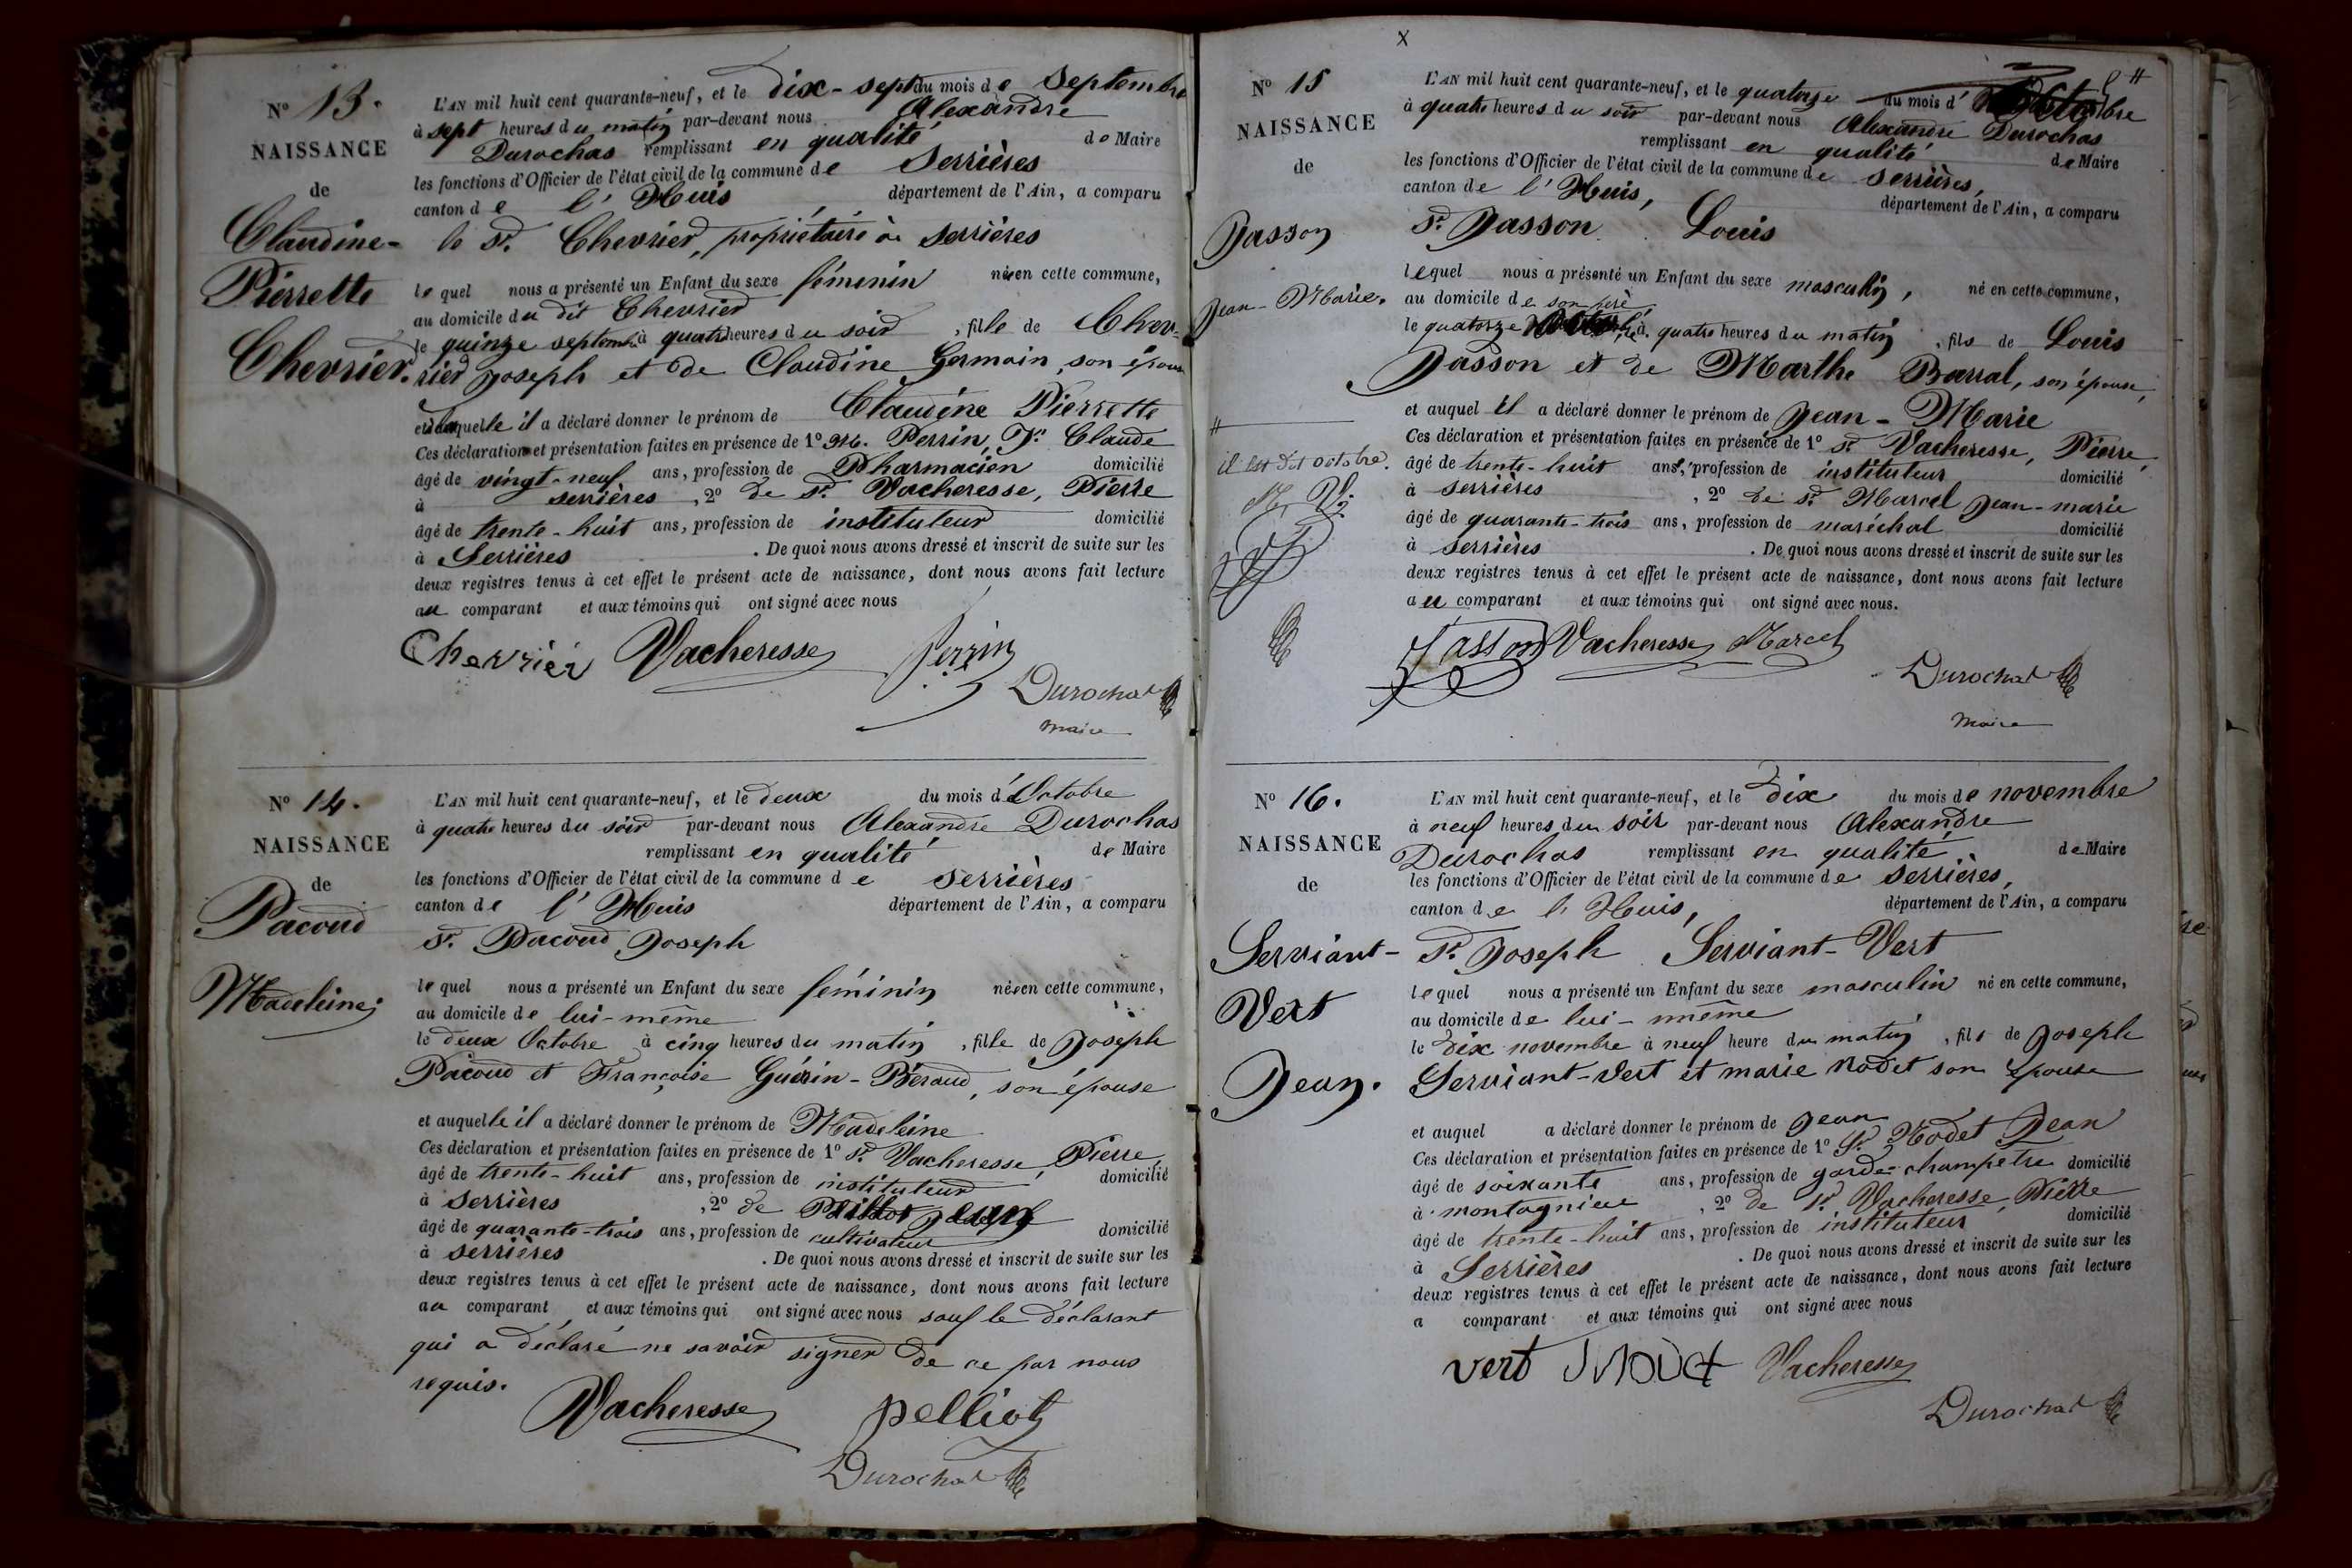 N° 13.
NAISSANCE
de
Claudine-
Pierrette
Chevrier.
L'AN mil huit cent quarante-neuf, et le dix-sept du mois de Septembre
à sept heures du matin par-devant nous Alexandre
Durochas remplissant en qualité de Maire
les fonctions d'Officier de l'état civil de la commune de Serrières
canton de l'Huis, département de l'Ain, a comparu
le Sr. Chevrier, propriétaire à Serrières
lequel nous a présenté un Enfant du sexe féminin née en cette commune,
au domicile du dit Chevrier
le quinze septembre à quatre heures du soir, fille de Chev-
rier Joseph et de Claudine Germain, son épouse
et laquelle il a déclaré donner le prénom de Claudine Pierrette
Ces déclaration et présentation faites en présence de 1° M. Perrin, Claude
âgé de vingt-neuf ans, profession de Pharmacien domicilié
à serrières, 2° de sr. Vacheresse, Pierre
âgé de trente-huit ans, profession de instituteur domicilié
à Serrières. De quoi nous avons dressé et inscrit de suite sur les
deux registres tenus à cet effet le présent acte de naissance, dont nous avons fait lecture
au comparant et aux témoins qui ont signé avec nous
Chevrier Vacheresse Perrin
Durochat
maire
N° 14.
NAISSANCE
de
Pacoud
Madeleine
L'AN mil huit cent quarante-neuf, et le deux du mois d'Octobre
à quatre heures du soir par-devant nous Alexandre Durochas
remplissant en qualité de Maire
les fonctions d'Officier de l'état civil de la commune de serrières
canton de l'Huis département de l'Ain, a comparu
Sr. Pacoud Joseph
lequel nous a présenté un Enfant du sexe féminin née en cette commune,
au domicile de lui-même
le deux Octobre à cinq heures du matin, fille de Joseph
Pacoud et Françoise Guérin-Béraud, son épouse
et auquelle il a déclaré donner le prénom de Madeleine
Ces déclaration et présentation faites en présence de 1° sr. Vacheresse, Pierre,
âgé de trente-huit ans, profession de instituteur domicilié
à serrières, 2° de
âgé de quarante-trois ans, profession de cultivateur domicilié
à serrières. De quoi nous avons dressé et inscrit de suite sur les
deux registres tenus à cet effet le présent acte de naissance, dont nous avons fait lecture
au comparant et aux témoins qui ont signé avec nous sauf le déclarant
qui a déclaré ne savoir signer de ce par nous
requis.
Vacheresse pelliot
Durochat
x
N° 15
NAISSANCE
de
Jasson
Jean-Marie.
#
il est dit octobre.
L'AN mil huit cent quarante-neuf, et le quatorze du mois d' #
à quatre heures du soir par-devant nous Alexandre Durochas
remplissant en qualité de Maire
les fonctions d'Officier de l'état civil de la commune de serrières,
canton de l'Huis, département de l'Ain, a comparu
Sr. Jasson Louis
lequel nous a présenté un Enfant du sexe masculin, né en cette commune,
au domicile de son père
le quatorze à quatre heures du matin, fils de Louis
Jasson et de Marthe Barral, son épouse,
et auquel il a déclaré donner le prénom de Jean-Marie
Ces déclaration et présentation faites en présence de 1° sr. Vacheresse, Pierre,
âgé de trente-huit ans, profession de instituteur domicilié
à serrières, 2° de sr. Marcel Jean-marie
âgé de quarante-trois ans, profession de maréchal domicilié
à serrières. De quoi nous avons dressé et inscrit de suite sur les
deux registres tenus à cet effet le présent acte de naissance, dont nous avons fait lecture
au comparant et aux témoins qui ont signé avec nous.
Jasson Vacheresse Marcel
Durochat
Maire
N° 16.
NAISSANCE
de
Serviant-
Vert
Jean.
L'AN mil huit cent quarante-neuf, et le dix du mois de novembre
à neuf heures du soir par-devant nous Alexandre
Durochas remplissant en qualité de Maire
les fonctions d'Officier de l'état civil de la commune de serrières,
canton de l'Huis, département de l'Ain, a comparu
Sr. Joseph Serviant-Vert
lequel nous a présenté un Enfant du sexe masculin né en cette commune,
au domicile de lui-même
le dix novembre à neuf heure du matin, fils de Joseph
Serviant-Vert et marie Nodet son épouse
et auquel a déclaré donner le prénom de Jean
Ces déclaration et présentation faites en présence de 1° Sr Nodet Jean
âgé de soixante ans, profession de garde-champetre domicilié
à montagnieu, 2° de sr Vacheresse, Pierre
âgé de trente-huit ans, profession de instituteur domicilié
à Serrières. De quoi nous avons dressé et inscrit de suite sur les
deux registres tenus à cet effet le présent acte de naissance, dont nous avons fait lecture
a comparant et aux témoins qui ont signé avec nous
vert Vacheresse
Durochat